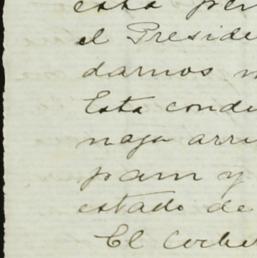 esta per
el Preside
darnos m
Esta conde
naja arri
pam y
estado de
El Coche